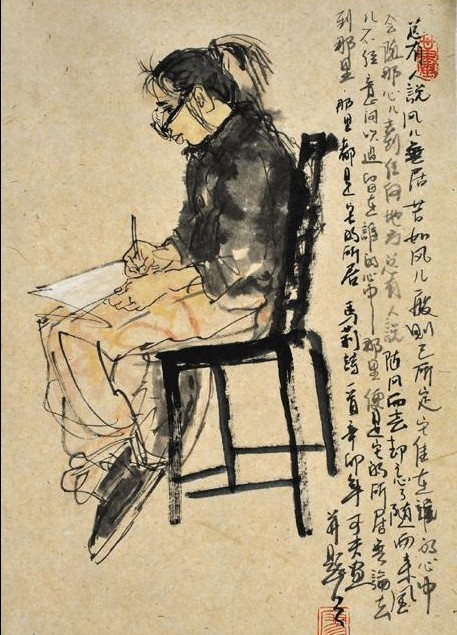 总有人说风儿無居若如风儿一般则已所定它住在谁的心中
会随那心儿去到任何地方总有人说随风而去却忘了随而来风
儿不经意间吹过留在誰的心中那里便是它的所居無論去
到那里那里都是它的所居馬莉詩一首辛卯年画并题